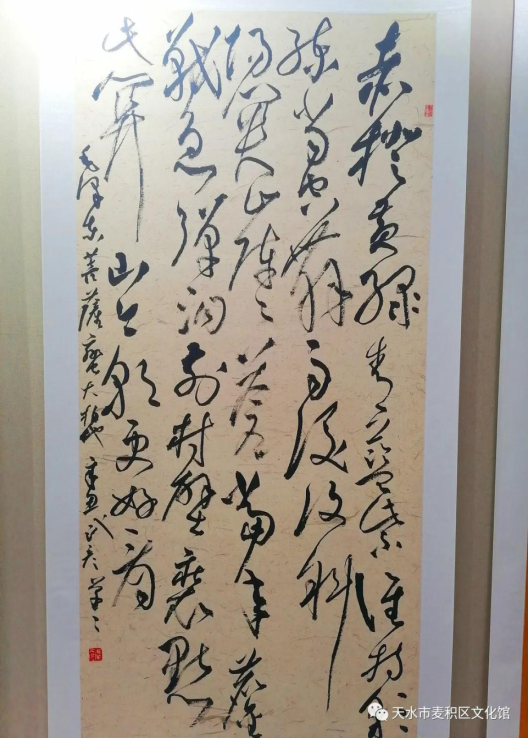 赤橙黄绿青蓝紫谁持彩
练当空舞雨后复斜
阳关山阵阵苍当年鏖
战急弹洞前村壁装点
此关山今朝更好看
毛泽东菩萨蛮大柏地 辛丑
天水市麦积区文化馆